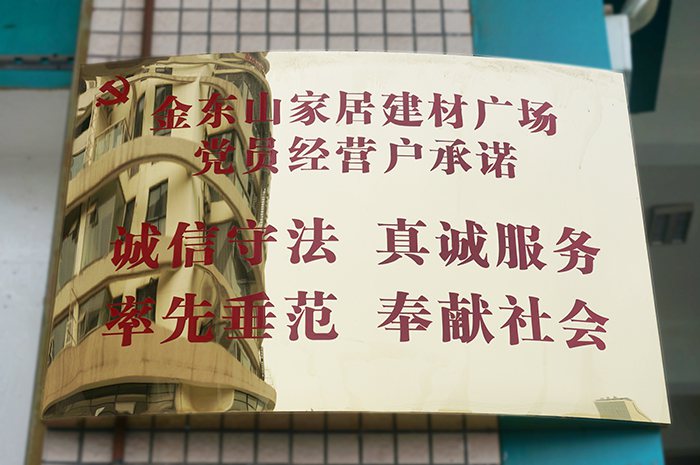 金东山家居建材广场
党员经营户承诺
诚信守法 真诚服务
率先垂范 奉献社会